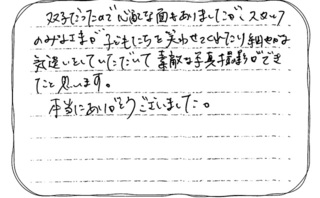 双子だったので心配な面もありましたが、スタッフ
のみなさまが子どもたちを笑わせてくれたり細やかな
気遣いをしていただいて素敵な写真撮影ができ
たと思います。
本当にありがとうございました。